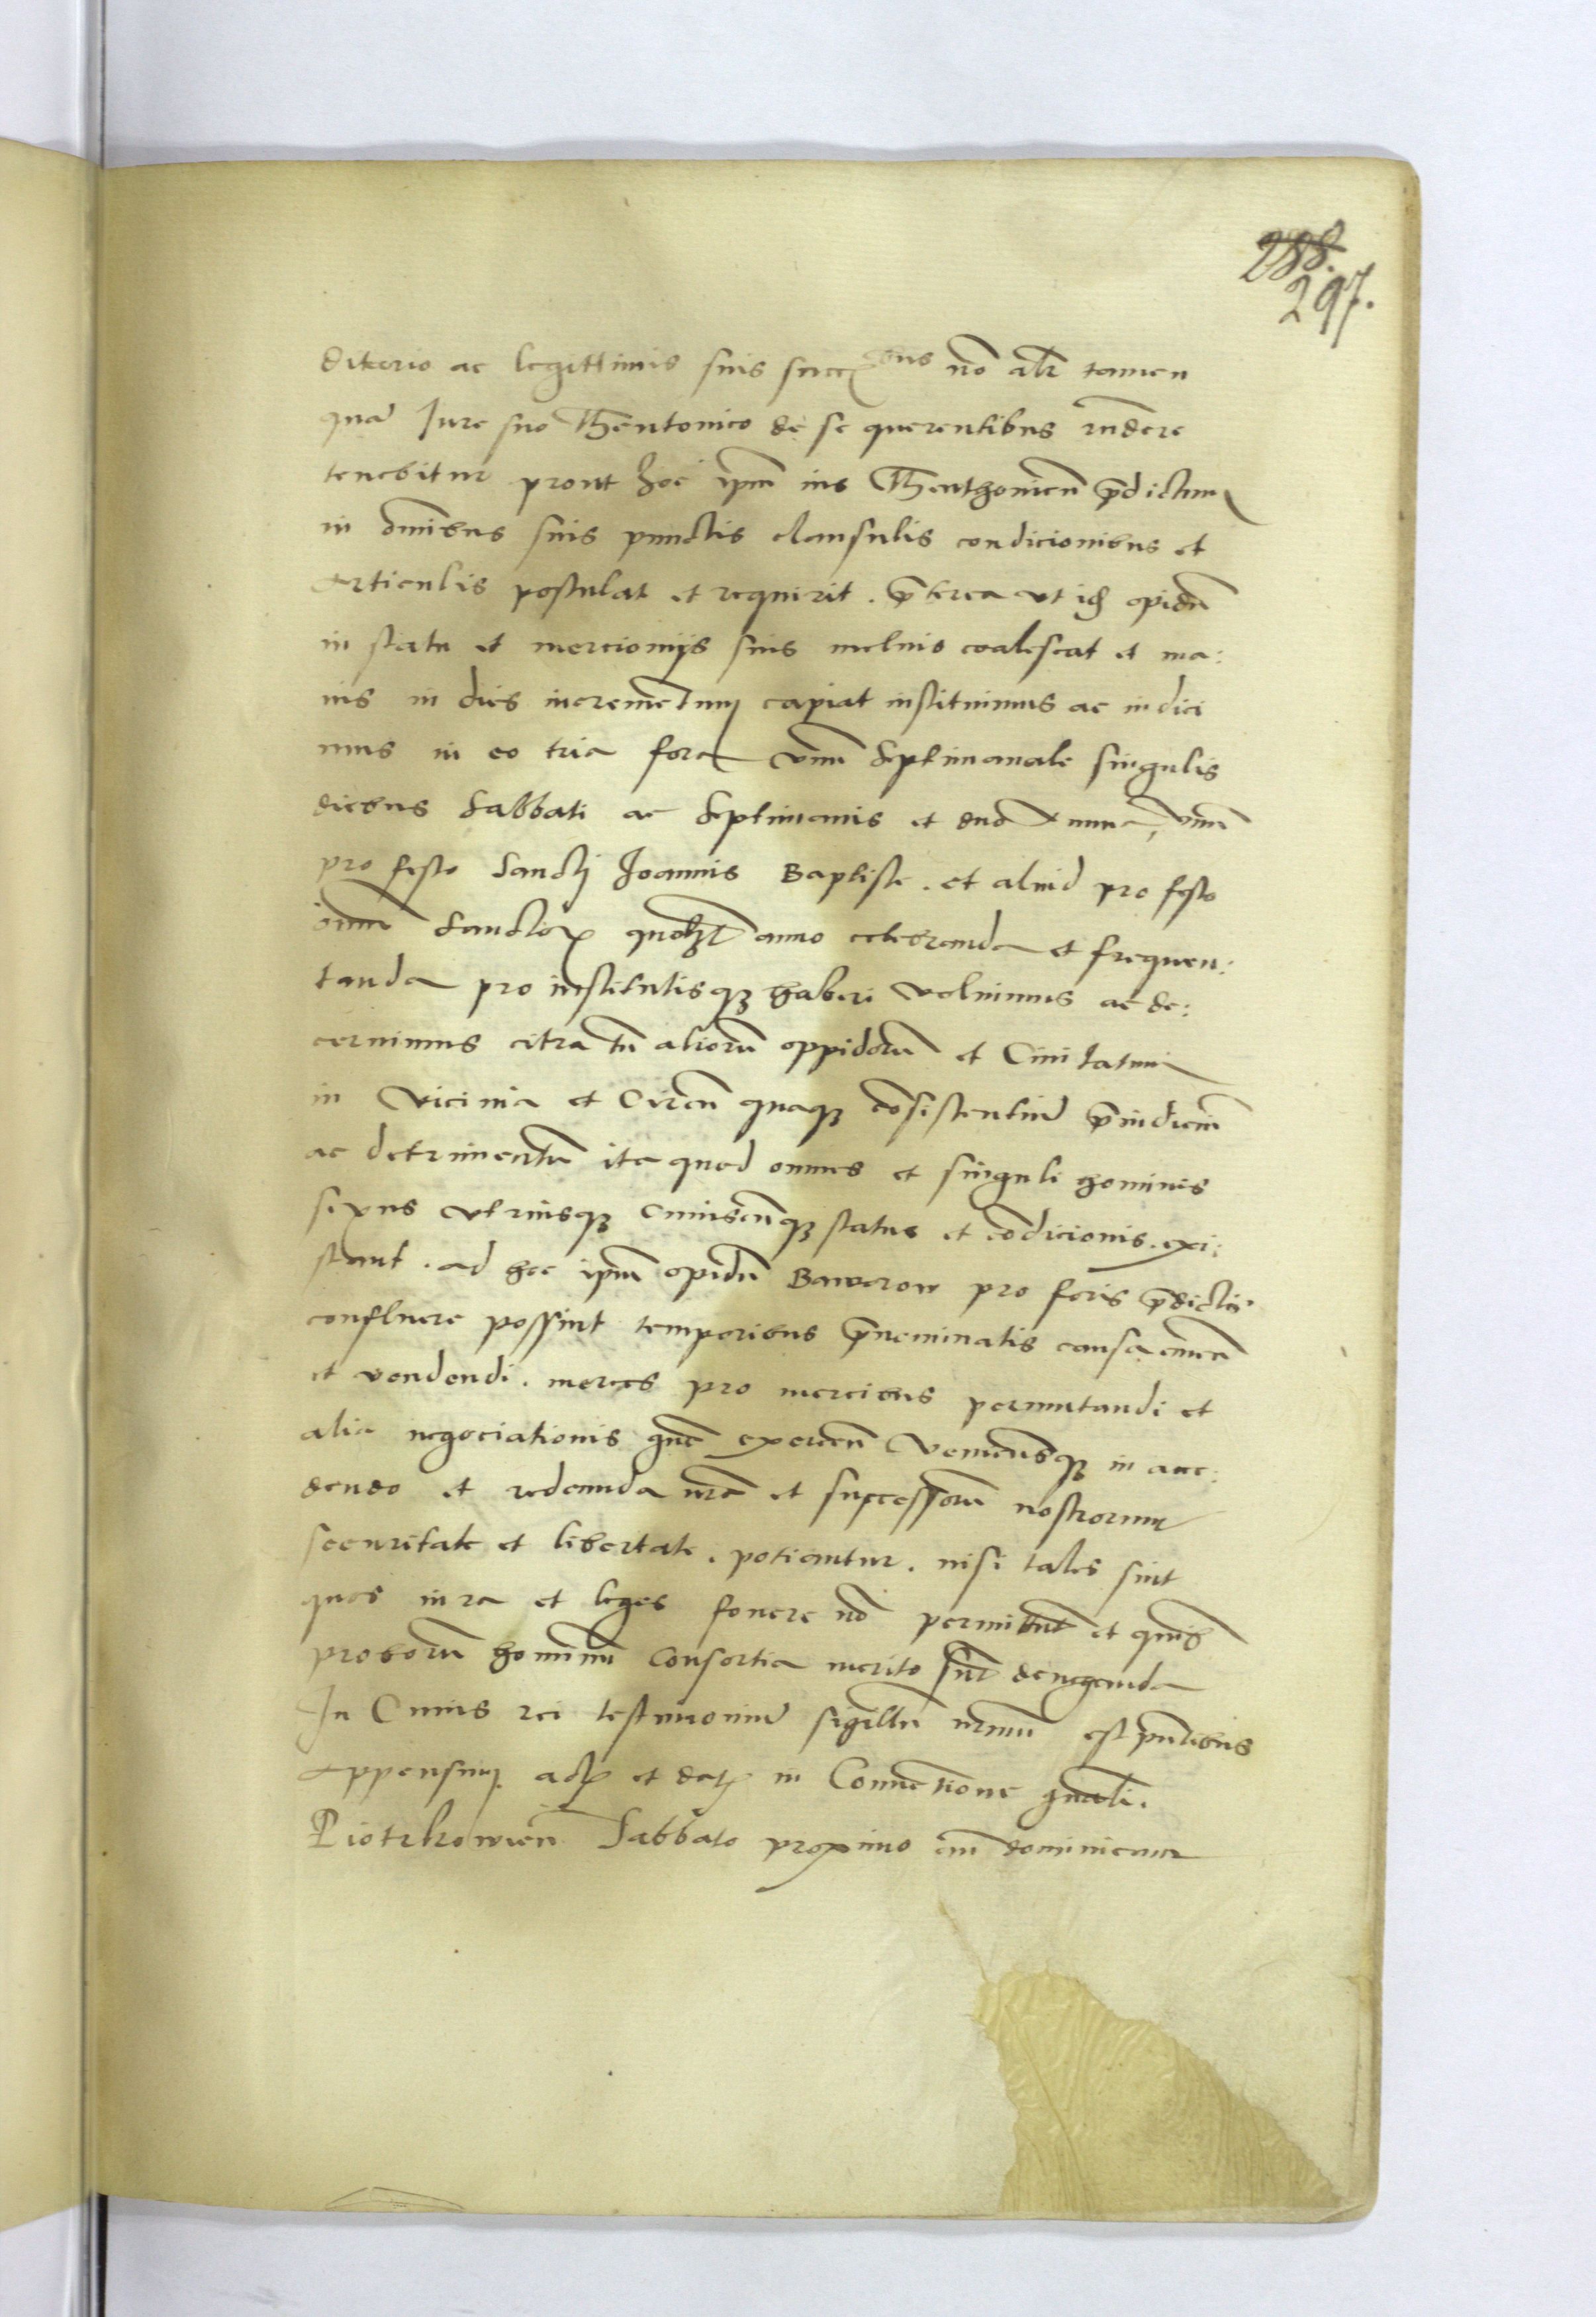 288.
297.
ditario ac legittimis suis succ bus nō alr tamen
quā Iure suo Theutonico de se querentibus rndere
tenebitur prout hoc ipm ius Theuthonicū predictum
in omībus suis punctis clausulis condicionibus et
Articulis postulat et requirit. preterea ut id opidū
in statu et mercioniis suis melius coalescat et ma:
ius in dies incrementum capiat instituimus ac indici
mus in eo tria fora vnū Septimanale singulis
diebus Sabbati ac Septimanis et duo Annua, vnū
pro festo Sancti Joannis Baptiste. et aliud pro festo
omū Sanctorꝫ quolꝫt anno celebranda et frequen:
tanda pro institutisqꝫ haberi volumus ac de:
cernimus citra tū aliorū oppidorū et Ciuitatum
in vicinia et Circū quaqꝫ cōsistentiū preiudiciū
ac detrimentū ita quod omnes et singuli homines
sexus vtriusqꝫ Cuiuscūqꝫ status et cōdicionis. exi:
stant. ad hoc ipm opidū Baworow pro foris predictis
confluere possint temporibus prenominatis causa emen
et vendendi. merces pro mercibus permutandi et
alia negociationis gn̄a exercen Veniensqꝫ in acce:
dendo et redeundo nrā et successorū nostrorum
securitate et libertate. potiantur. nisi tales sint
quos iura et leges fouere nō permittunt et quibꝫ
proborū hominū Consortia merito sunt deneganda
In Cuius rei testimoniū sigillū nrm̄ est pntibus
Appensum. actꝫ et datꝫ in Conuētione gnali.
Piotrkowien Sabbato proximo an̄ dominicam